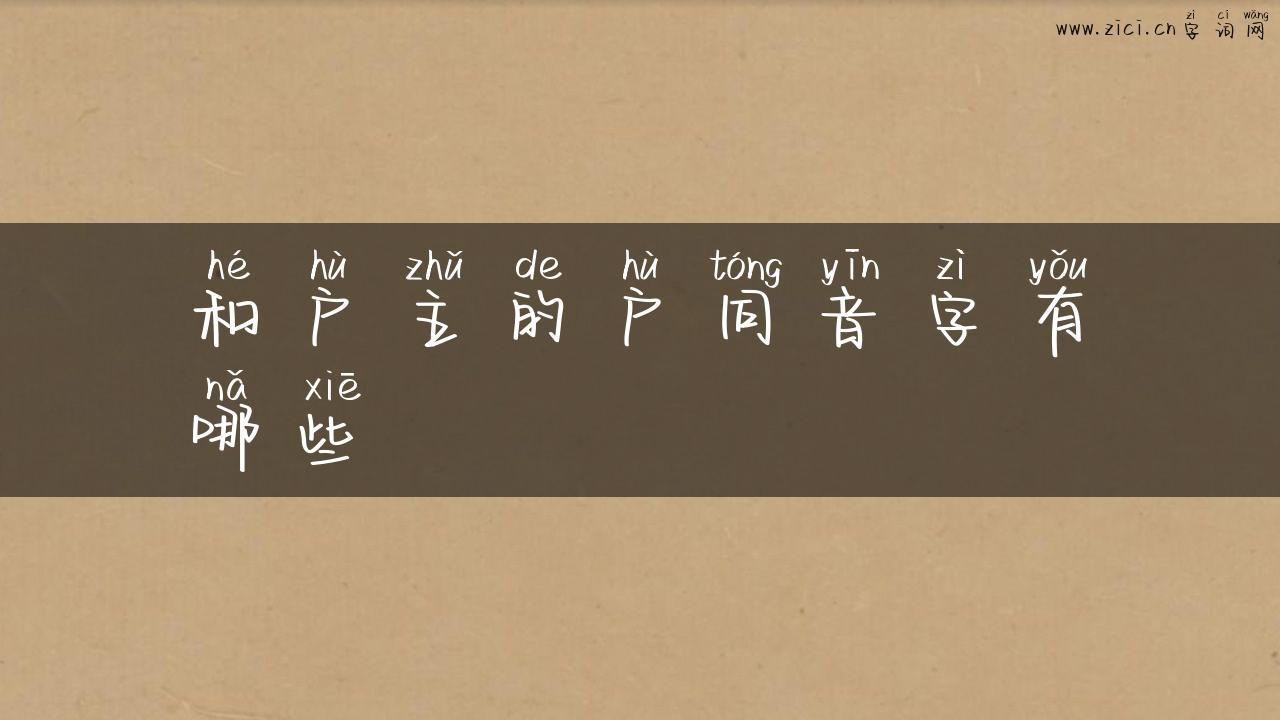 zì cí wǎng
www.zici.cn 字词网
hé hù zhǔ de hù tóng yīn zì yǒu
和户主的户同音字有
nǎ xiē
哪些